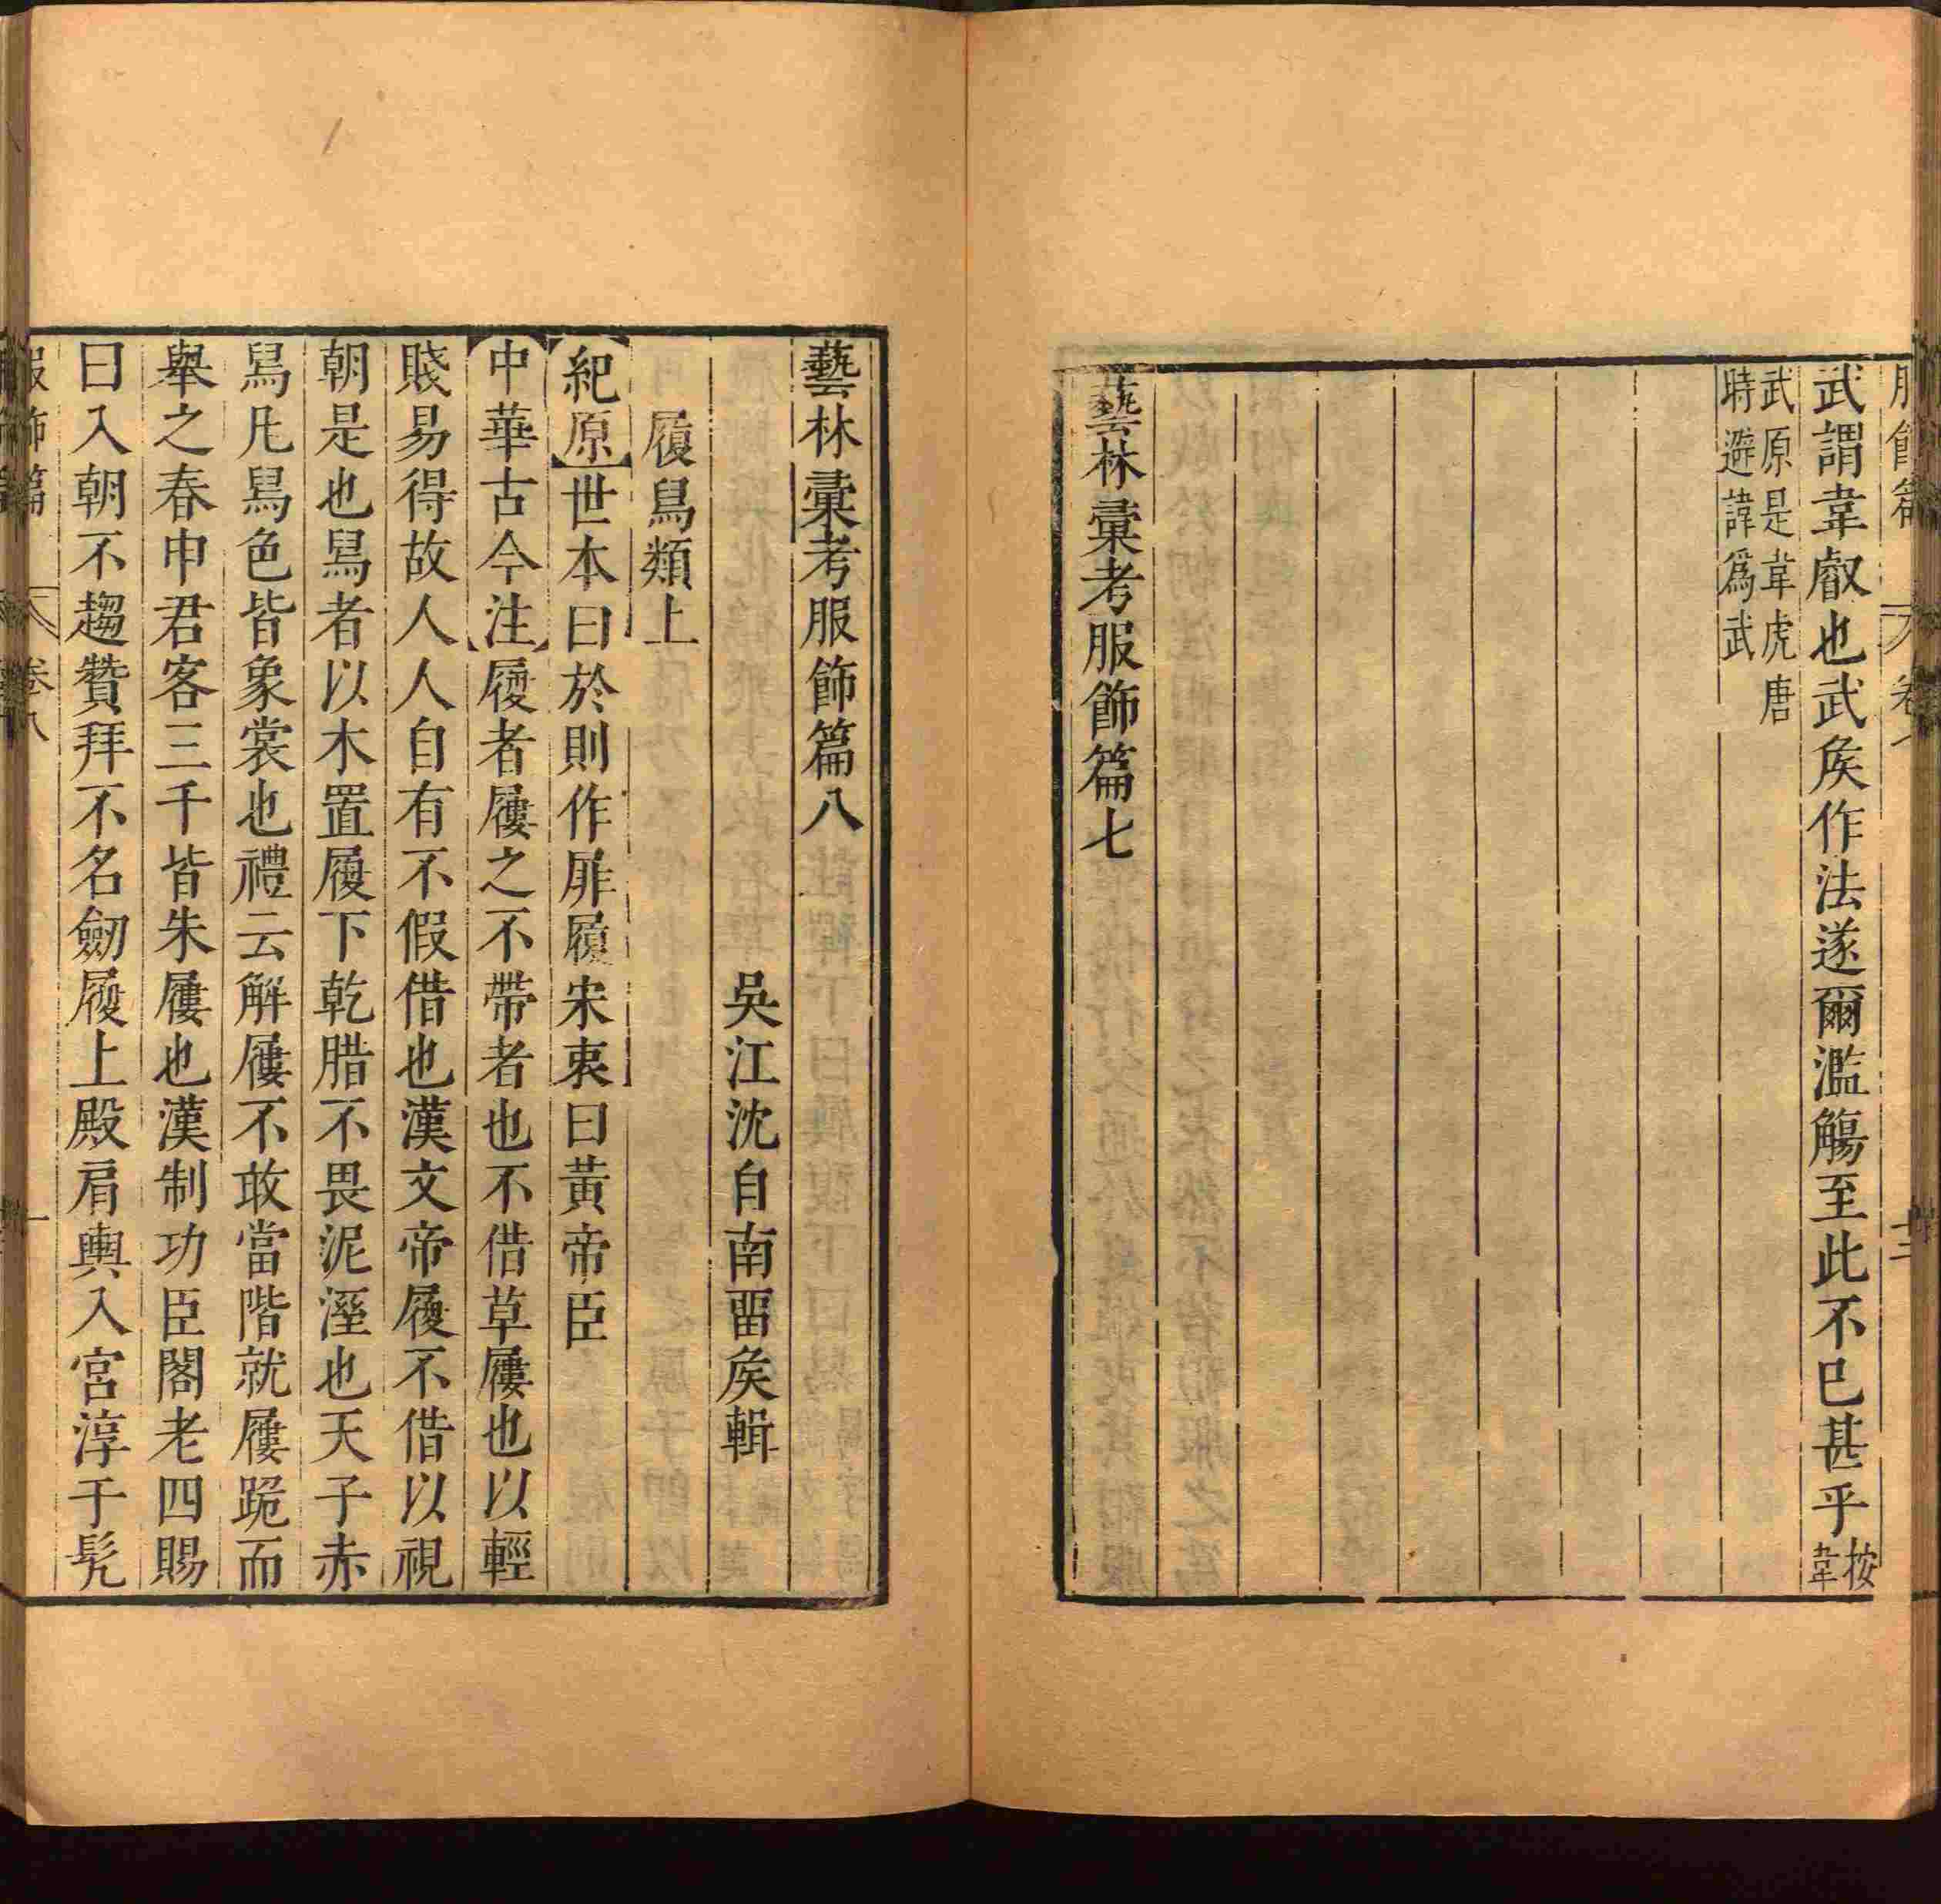 武謂韋叡也武矦作法遂爾濫觴至此不已甚乎按韋
武原是韋虎唐
時避諱爲武
藝林彙考服飾篇七
藝林彙考服飾篇八
吳江沈自南畱矦輯
履舄類上
紀原世本曰於則作扉履宋衷曰黃帝臣
中華古今注履者屨之不帶者也不借草屨也以輕
賤易得故人人自有不假借也漢文帝履不借以視
朝是也舄者以木置履下乾腊不畏泥溼也天子赤
舄凡舄色皆象裳也禮云解屨不敢當階就屨跪而
舉之春申君客三千皆朱屨也漢制功臣閣老四賜
曰入朝不趨贊拜不名劒履上殿肩輿入宮淳于髠
服飾篇 卷八 一